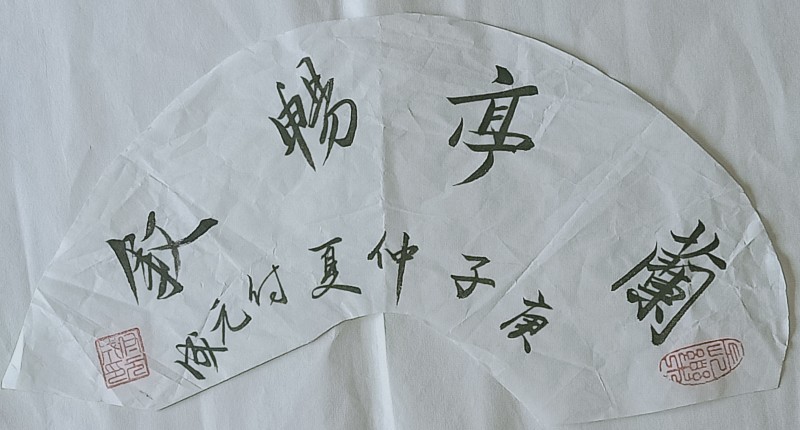 蘭亭暢敘
庚子仲夏付元成